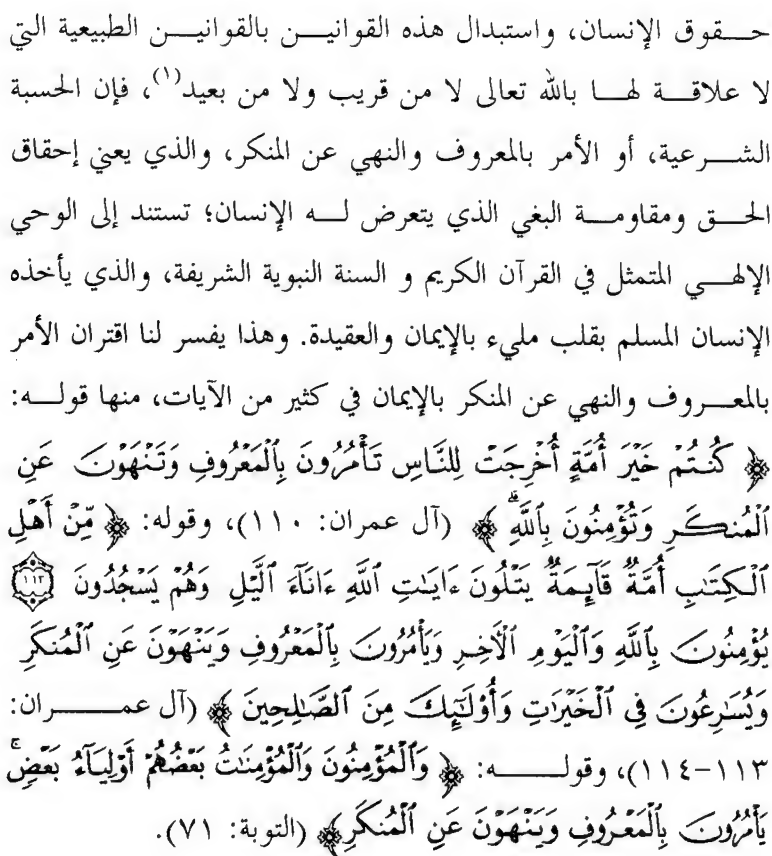 حـــقوق الإنسان، واستبدال هذه القوانيـــن بالقوانيـــن الطبيعية التي
لا علاقـــة لهـــا بالله تعالى لا من قريب ولا من بعيد(١)، فإن الحسبة
الشـــرعية، أو الأمر بالمعروف والنهي عن المنكر، والذي يعني إحقاق
الحـــق ومقاومـــة البغي الذي يتعرض لـــه الإنسان؛ تستند إلى الوحي
الإلهـــي المتمثل في القرآن الكريم و السنة النبوية الشريفة، والذي يأخذه
الإنسان المسلم بقلب مليء بالإيمان والعقيدة. وهذا يفسر لنا اقتران الأمر
بالمعـــروف والنهي عن المنكر بالإيمان في كثير من الآيات، منها قولـــه:
﴿ كُنتُمْ خَيْرَ أُمَّةٍ أُخْرِجَتْ لِلنَّاسِ تَأْمُرُونَ بِٱلْمَعْرُوفِ وَتَنْهَوْنَ عَنِ
ٱلْمُنكَرِ وَتُؤْمِنُونَ بِٱللَّهِ ۗ ﴾ (آل عمران: ١١٠)، وقوله: ﴿ مِّنْ أَهْلِ
ٱلْكِتَٰبِ أُمَّةٌ قَآئِمَةٌ يَتْلُونَ ءَايَٰتِ ٱللَّهِ ءَانَآءَ ٱلَّيْلِ وَهُمْ يَسْجُدُونَ ١١٣
يُؤْمِنُونَ بِٱللَّهِ وَٱلْيَوْمِ ٱلْأَخِرِ وَيَأْمُرُونَ بِٱلْمَعْرُوفِ وَيَنْهَوْنَ عَنِ ٱلْمُنكَرِ
وَيُسَٰرِعُونَ فِى ٱلْخَيْرَٰتِ وَأُو۟لَٰٓئِكَ مِنَ ٱلصَّٰلِحِينَ ﴾ (آل عمـــــران:
١١٣-١١٤)، وقولـــــه: ﴿ وَٱلْمُؤْمِنُونَ وَٱلْمُؤْمِنَٰتُ بَعْضُهُمْ أَوْلِيَآءُ بَعْضٍ ۚ
يَأْمُرُونَ بِٱلْمَعْرُوفِ وَيَنْهَوْنَ عَنِ ٱلْمُنكَرِ﴾ (التوبة: ٧١).